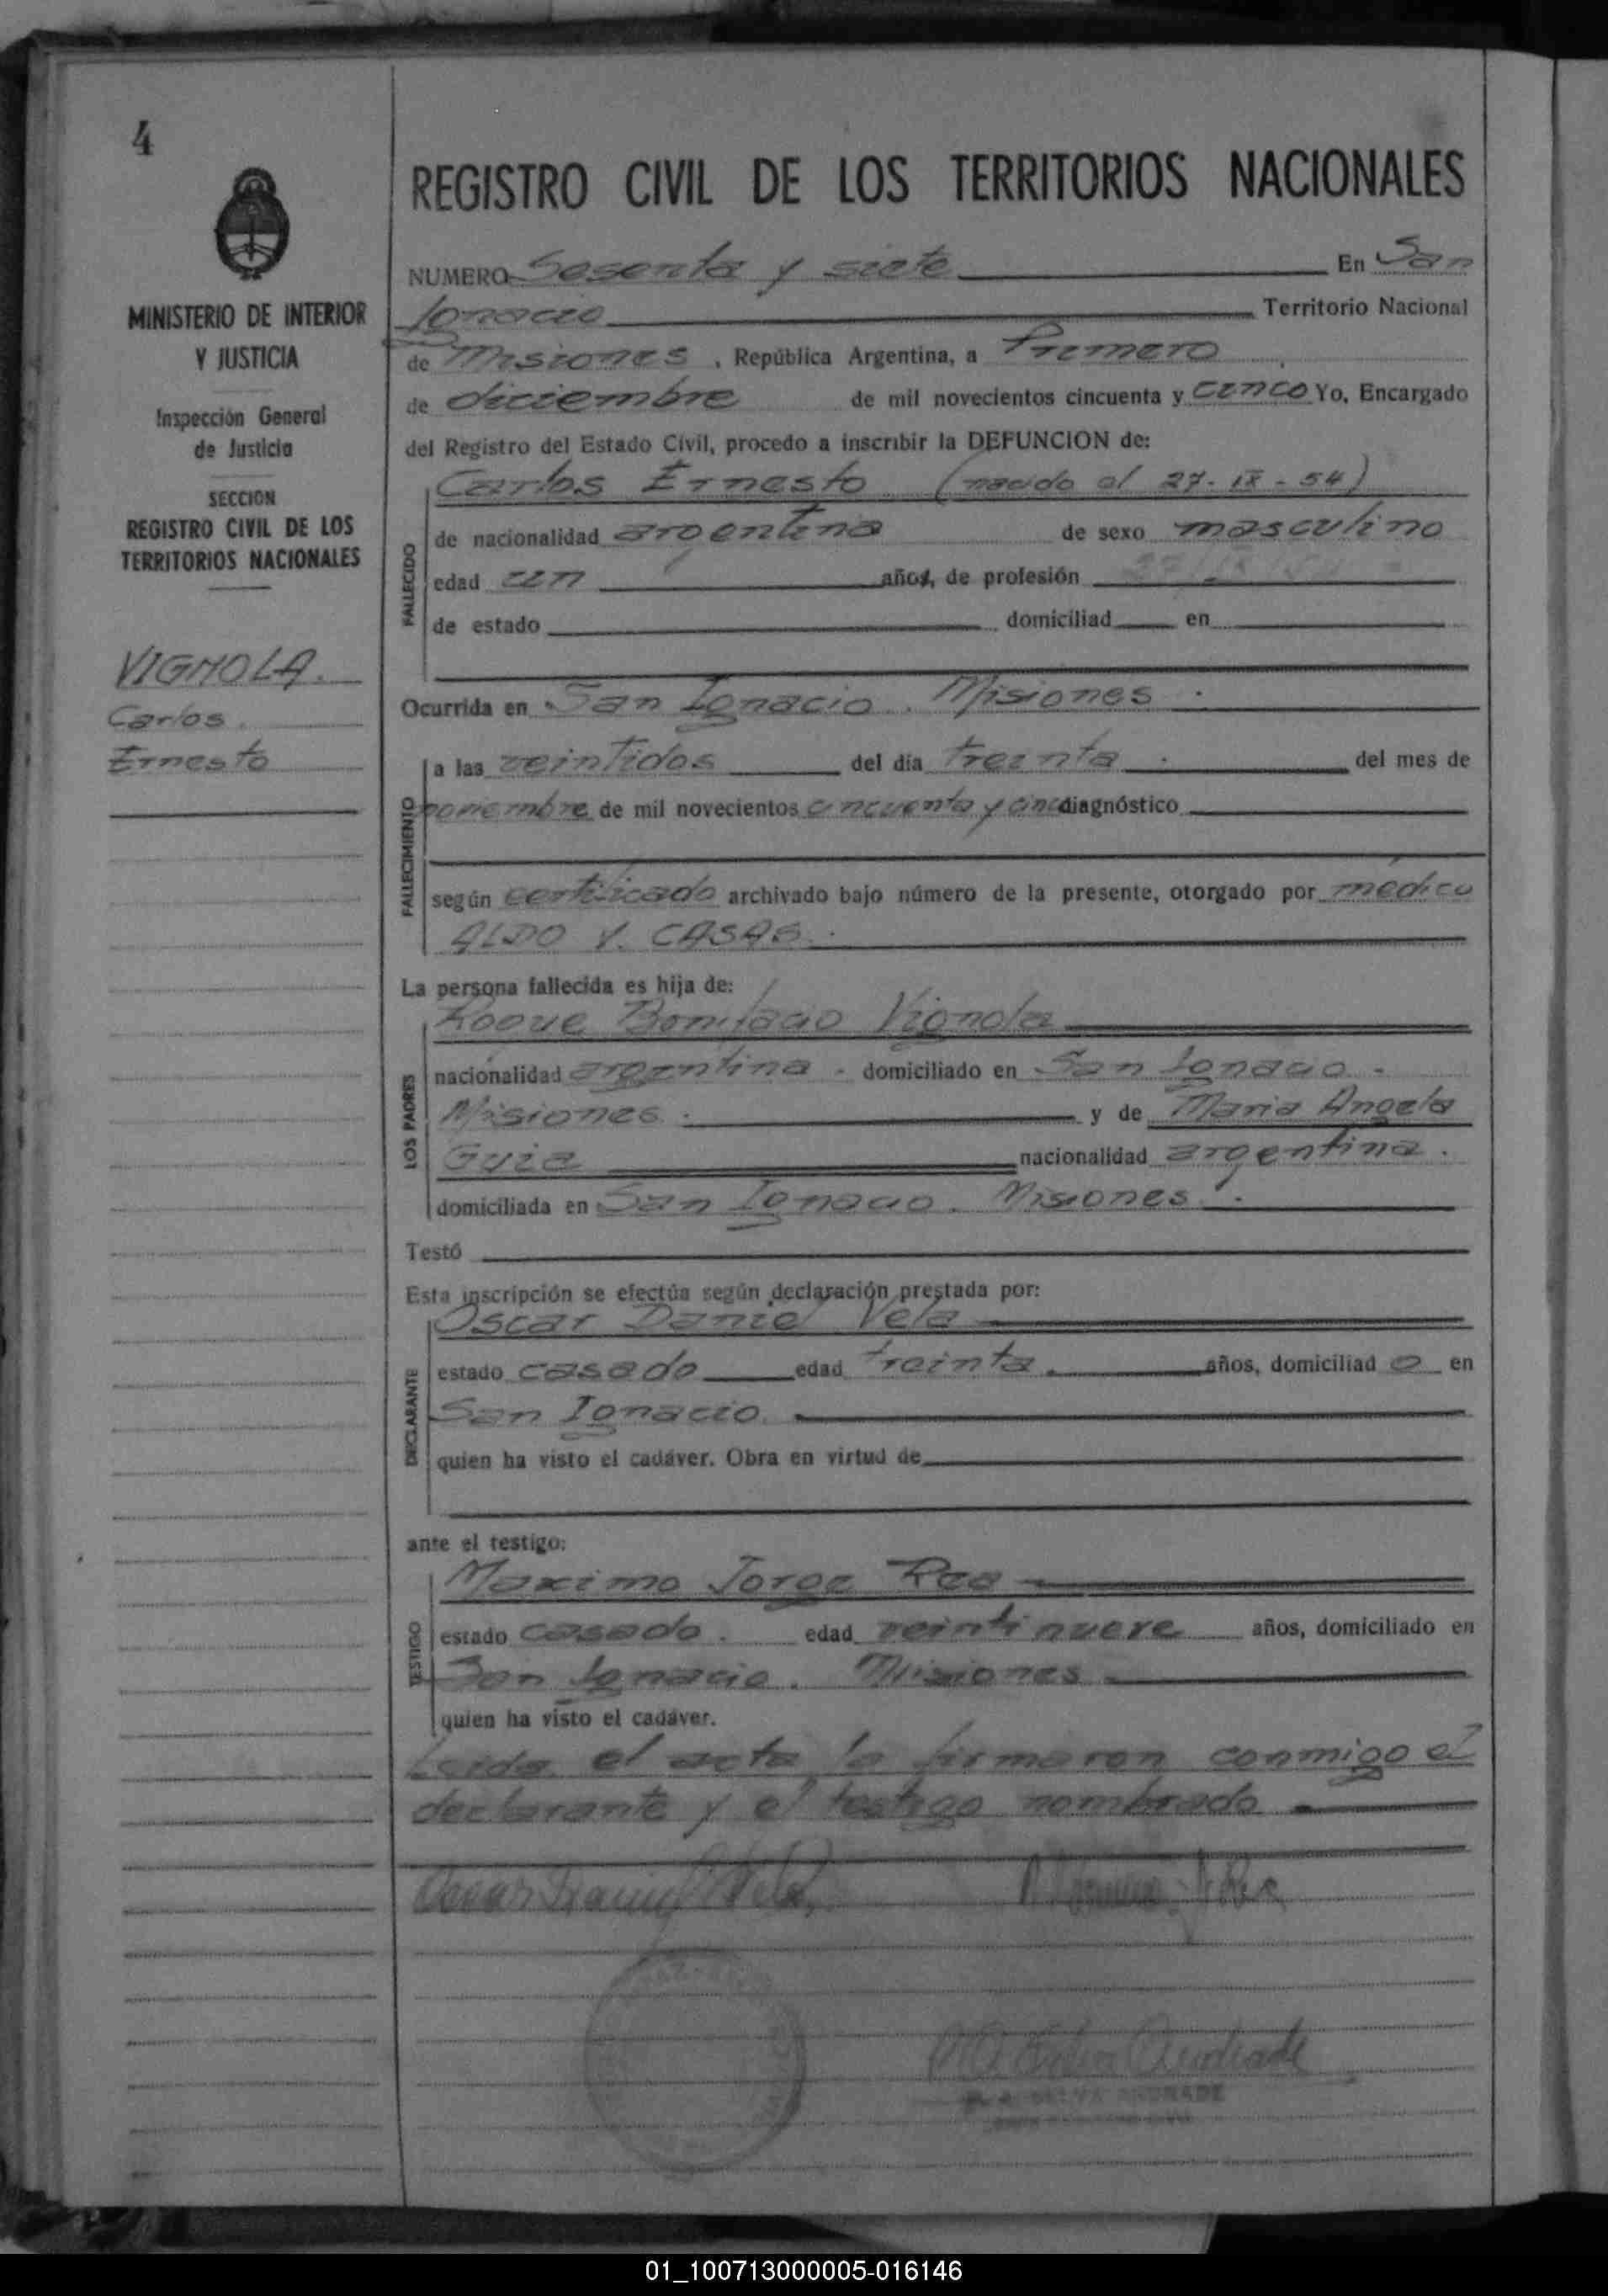 4
MINISTERIO DE INTERIOR
Y JUSTICIA
Inspección General
de Justicia
SECCION
REGISTRO CIVIL DE LOS
TERRITORIOS NACIONALES
VIGNOLA.
Carlos
Ernesto
REGISTRO CIVIL DE LOS TERRITORIOS NACIONALES
NUMERO Sesenta y siete En San
Ignacio Territorio Nacional
de Misiones, República Argentina, a Primero
de diciembre de mil novecientos cincuenta y cinco Yo, Encargado
del Registro del Estado Civil, procedo a inscribir la DEFUNCION de:
FALLECIDO
Carlos Ernesto (nacido el 27-IX-54)
de nacionalidad argentina de sexo masculino
edad un años, de profesión
de estado domiciliad en
Ocurrida en San Ignacio. Misiones.
FALLECIMIENTO
a las veintidos del día treinta del mes de
noviembre de mil novecientos cincuenta y cinco diagnóstico
según certificado archivado bajo número de la presente, otorgado por médico
ALDO V. CASAS.
La persona fallecida es hija de:
LOS PADRES
Roque Bonifacio Vignola
nacionalidad argentina. domiciliado en San Ignacio.
Misiones. y de Maria Angela
Guia nacionalidad argentina.
domiciliada en San Ignacio. Misiones.
Testó
Esta inscripción se efectúa según declaración prestada por:
DECLARANTE
Oscar Daniel Vela
estado casado edad treinta. años, domiciliad o en
San Ignacio.
quien ha visto el cadáver. Obra en virtud de
ante el testigo:
TESTIGO
Maximo Jorge Rea
estado casado. edad veintinueve años, domiciliado en
San Ignacio. Misiones
quien ha visto el cadáver.
Leida el acta la firmaron conmigo el
declarante y el testigo nombrado
Oscar Daniel Vela
Andrade
ANDRADE
01_100713000005-016146